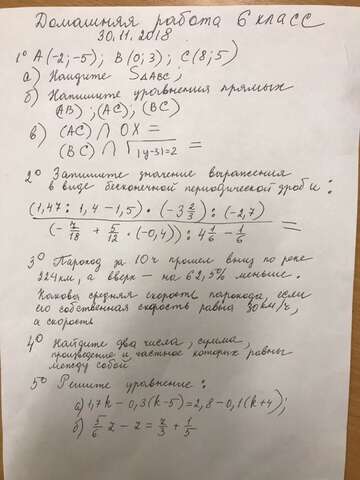 Домашняя работа 6 класс
30.11.2018
1° A(-2;-5); B(0;3); C(8;5)
а) Найдите S△ABC;
б) Напишите уравнения прямых
(AB); (AC); (BC)
в) (AC) ⋂ OX =
(BC) ⋂ Г|y-3|=2 =
2° Запишите значение выражения
в виде бесконечной периодической дроби:
(1,47 : 1,4 - 1,5) · (-3 2/3) : (-2,7)
(-7/18 + 5/12 · (-0,4)) : 4 1/6 - 1/6 =
3° Пароход за 10 ч прошел вниз по реке
224 км, а вверх - на 62,5% меньше.
Какова средняя скорость парохода, если
его собственная скорость равна 30 км/ч,
а скорость
4° Найдите два числа, сумма,
произведение и частное которых равны
между собой
5° Решите уравнение:
а) 1,7k - 0,3(k-5) = 2,8 - 0,1(k+4);
б) 5/6 z - z = z/3 + 1/5